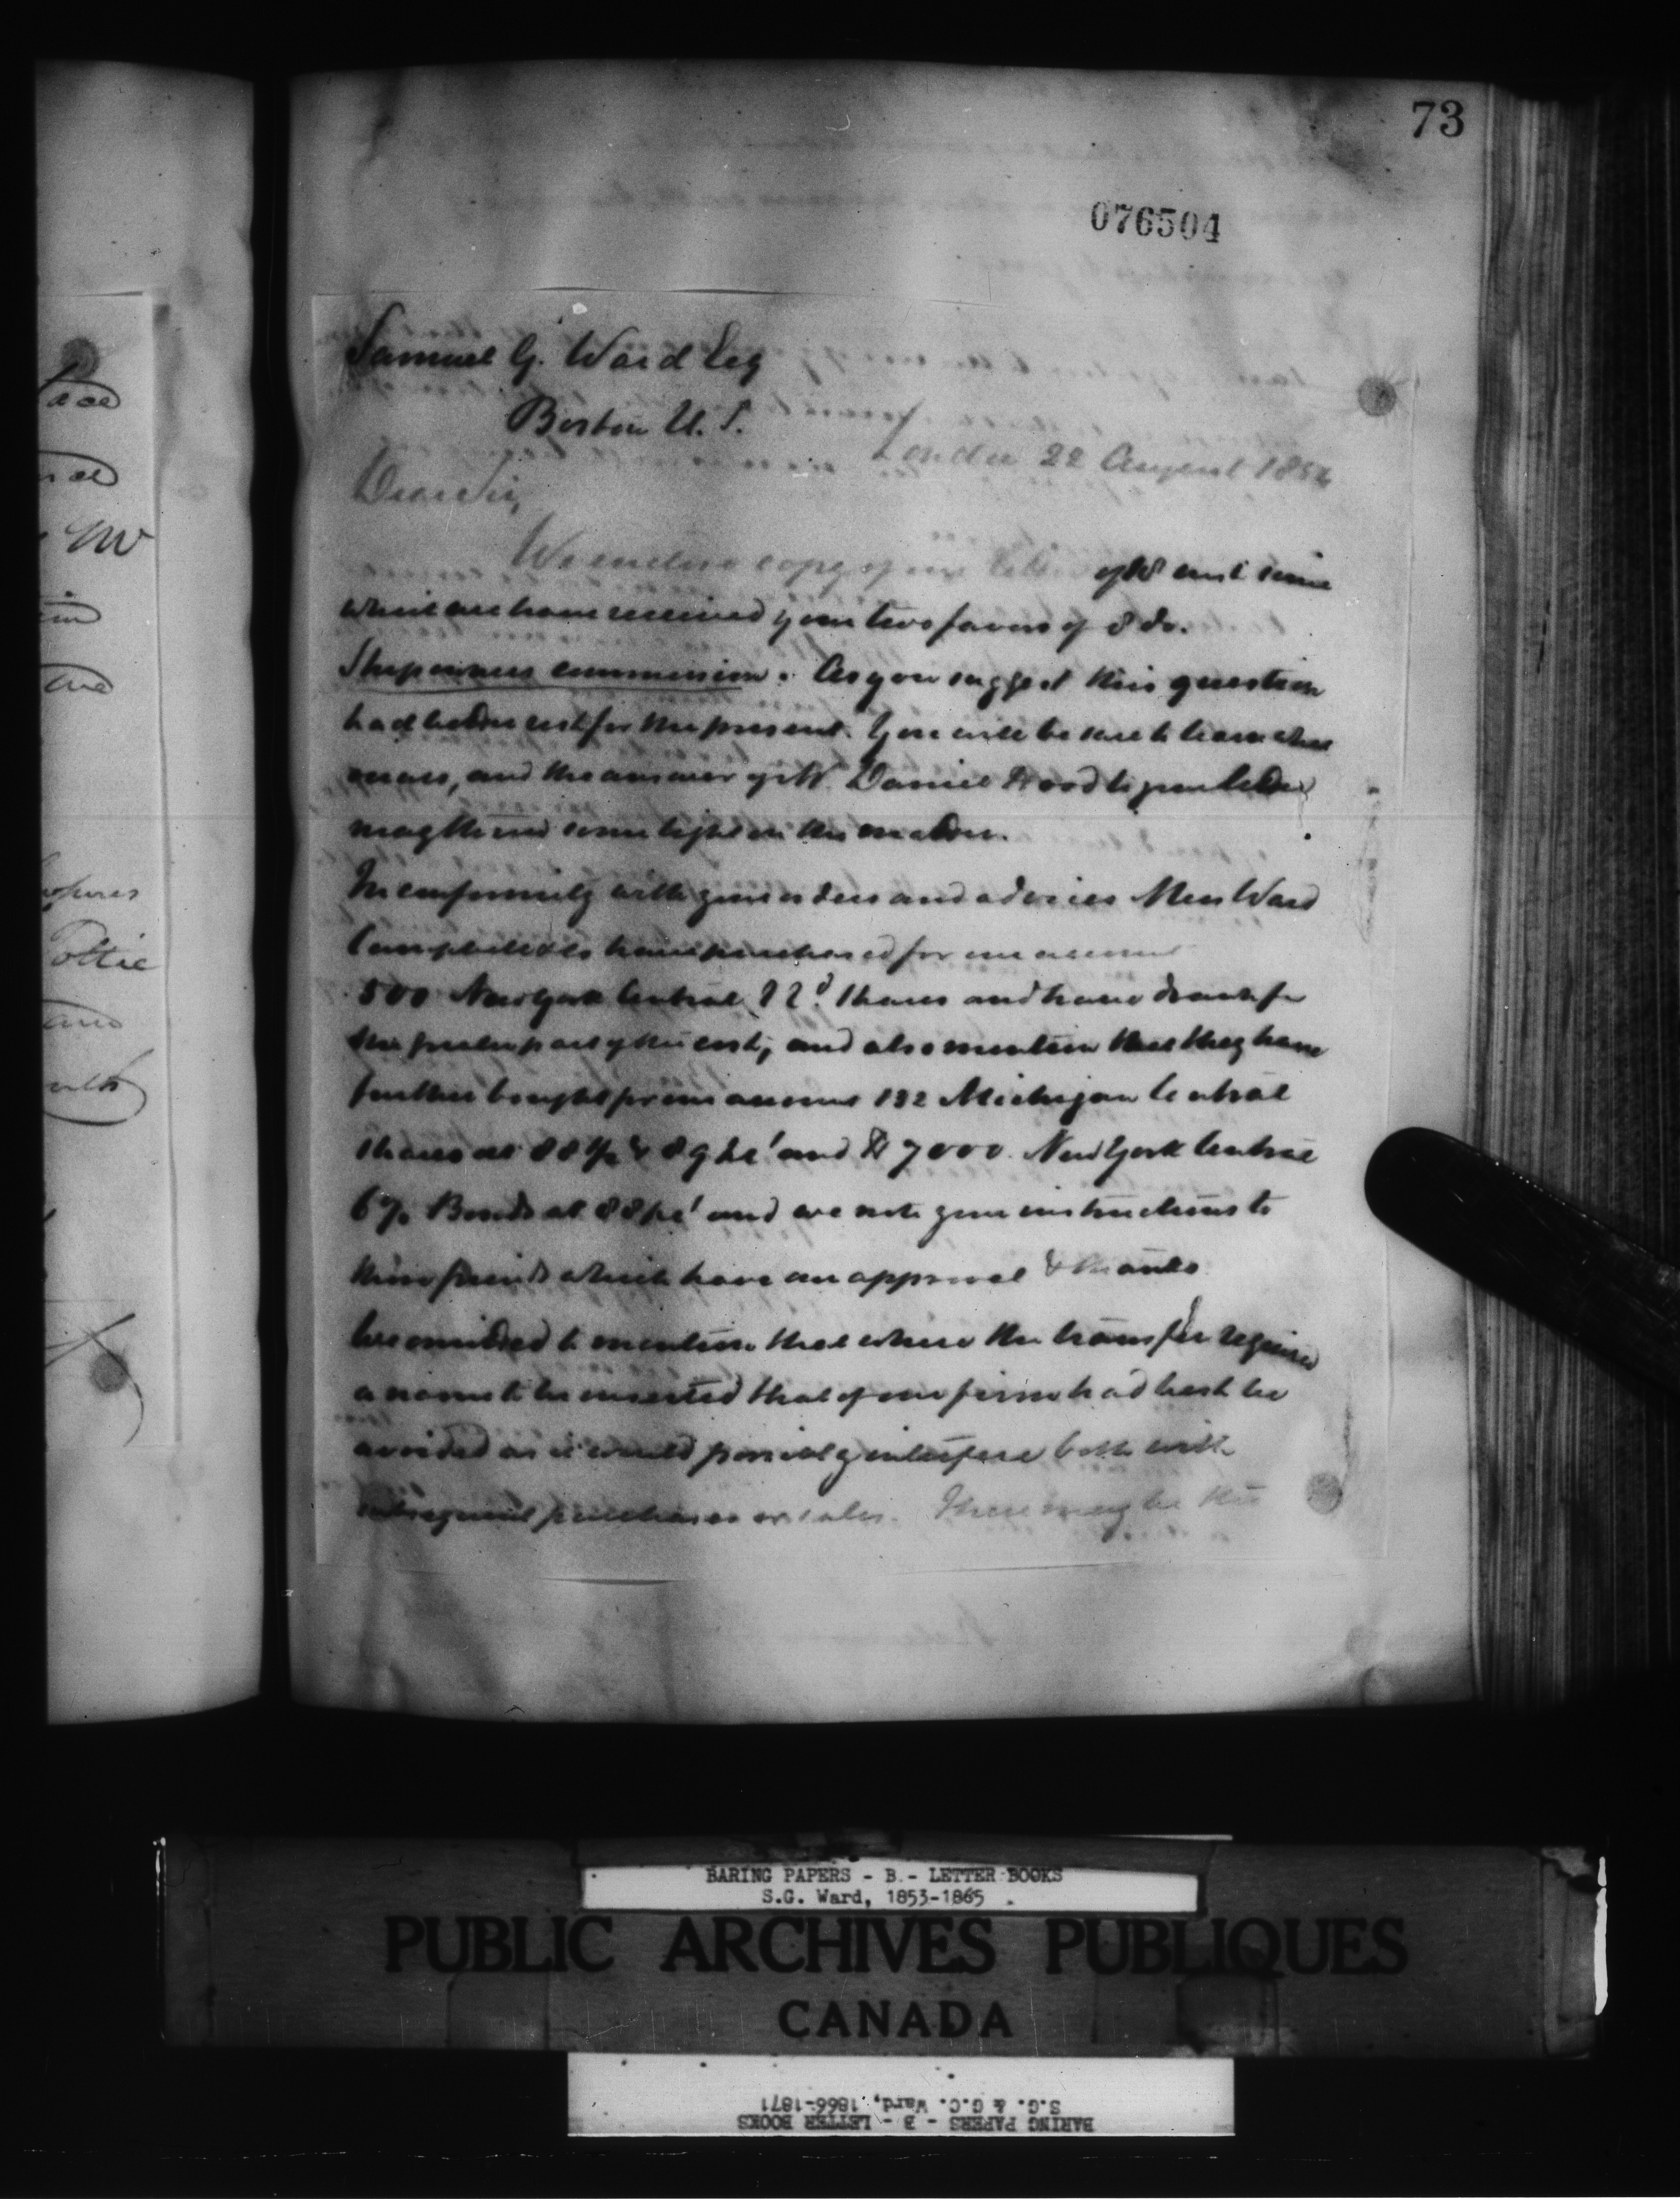 73
076504
Samuel G. Ward Esq
Boston U.S.
London 22 August 1854
Dear Sir,
We enclose copy of our letter of 18 inst since
which we have received your two favors of 8 do.
Shipowners commission. As you suggest this question
had better rest for the present. You will be sure to learn what
occurs, and the answer of Mr. Daniel Hood to your letter
may throw some light on the matter.
In conformity with your orders and advices Mess Ward
Campbell & Co have purchased for our account
500 New York Central shares and have drawn for
the greater part of the cost, and also mention that they have
further bought for our account 132 Michigan Central
shares at 88½ & 89 and $7000 New York Central
6% Bonds at 88 and we note your instructions to
these friends which have our approval & thanks
We omitted to mention that where the transfer required
a name to be inserted that of our firm had best be
avoided as it would possibly interfere both with
subsequent purchases or sales. There may be the
ace
Mr
ave
Pottie
and
with
BARING PAPERS - B.- LETTER BOOKS
S.G. Ward, 1853-1865
PUBLIC ARCHIVES PUBLIQUES
CANADA
BARING PAPERS - B - LETTER BOOKS
S.G. & G.C. Ward, 1866-1871